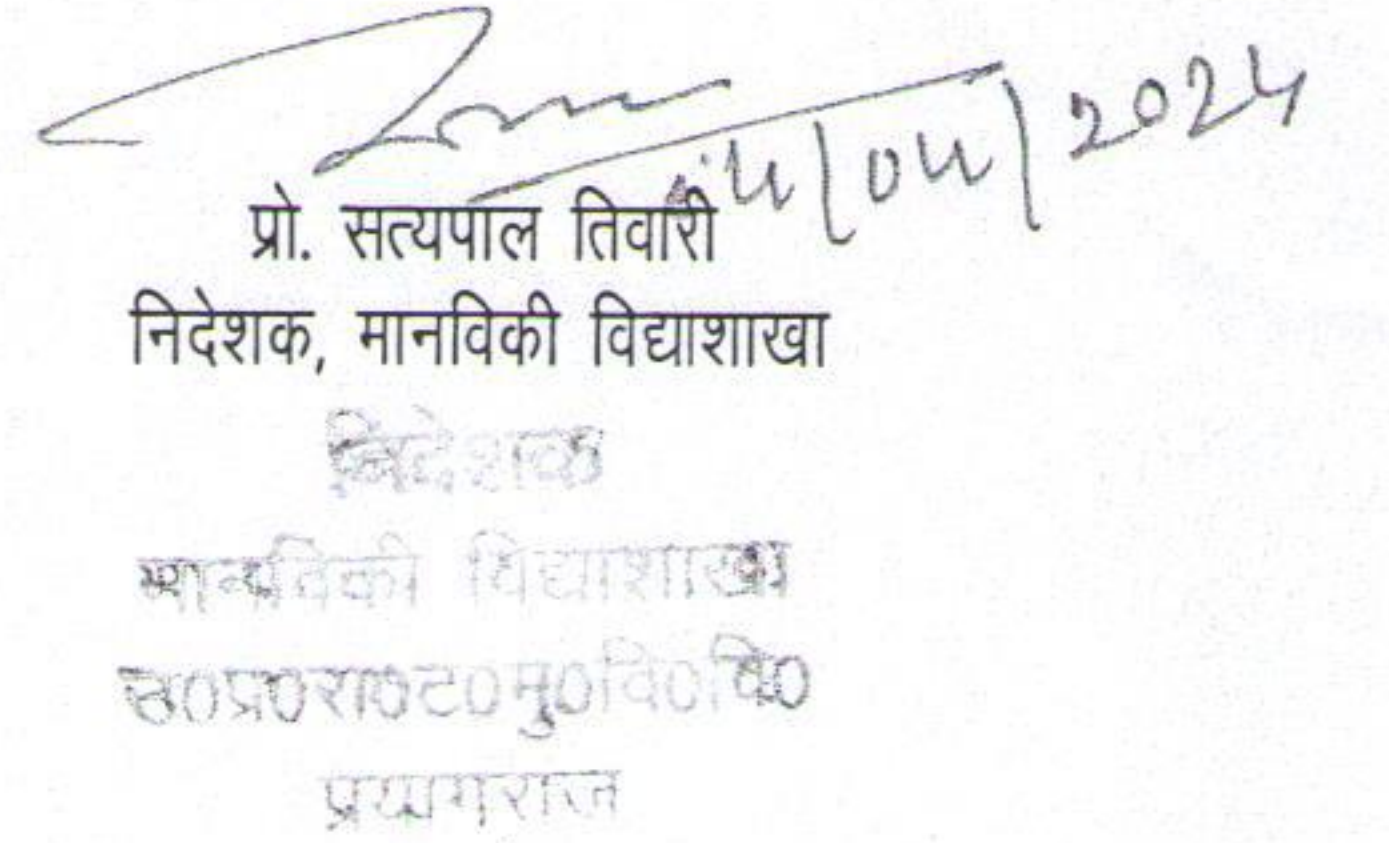 04/2024
प्रो. सत्यपाल तिवारी
निदेशक, मानविकी विद्याशाखा
निदेशक
मानविकी विद्याशाखा
उ0प्र0रा0ट0मु0वि0वि0
प्रयागराज